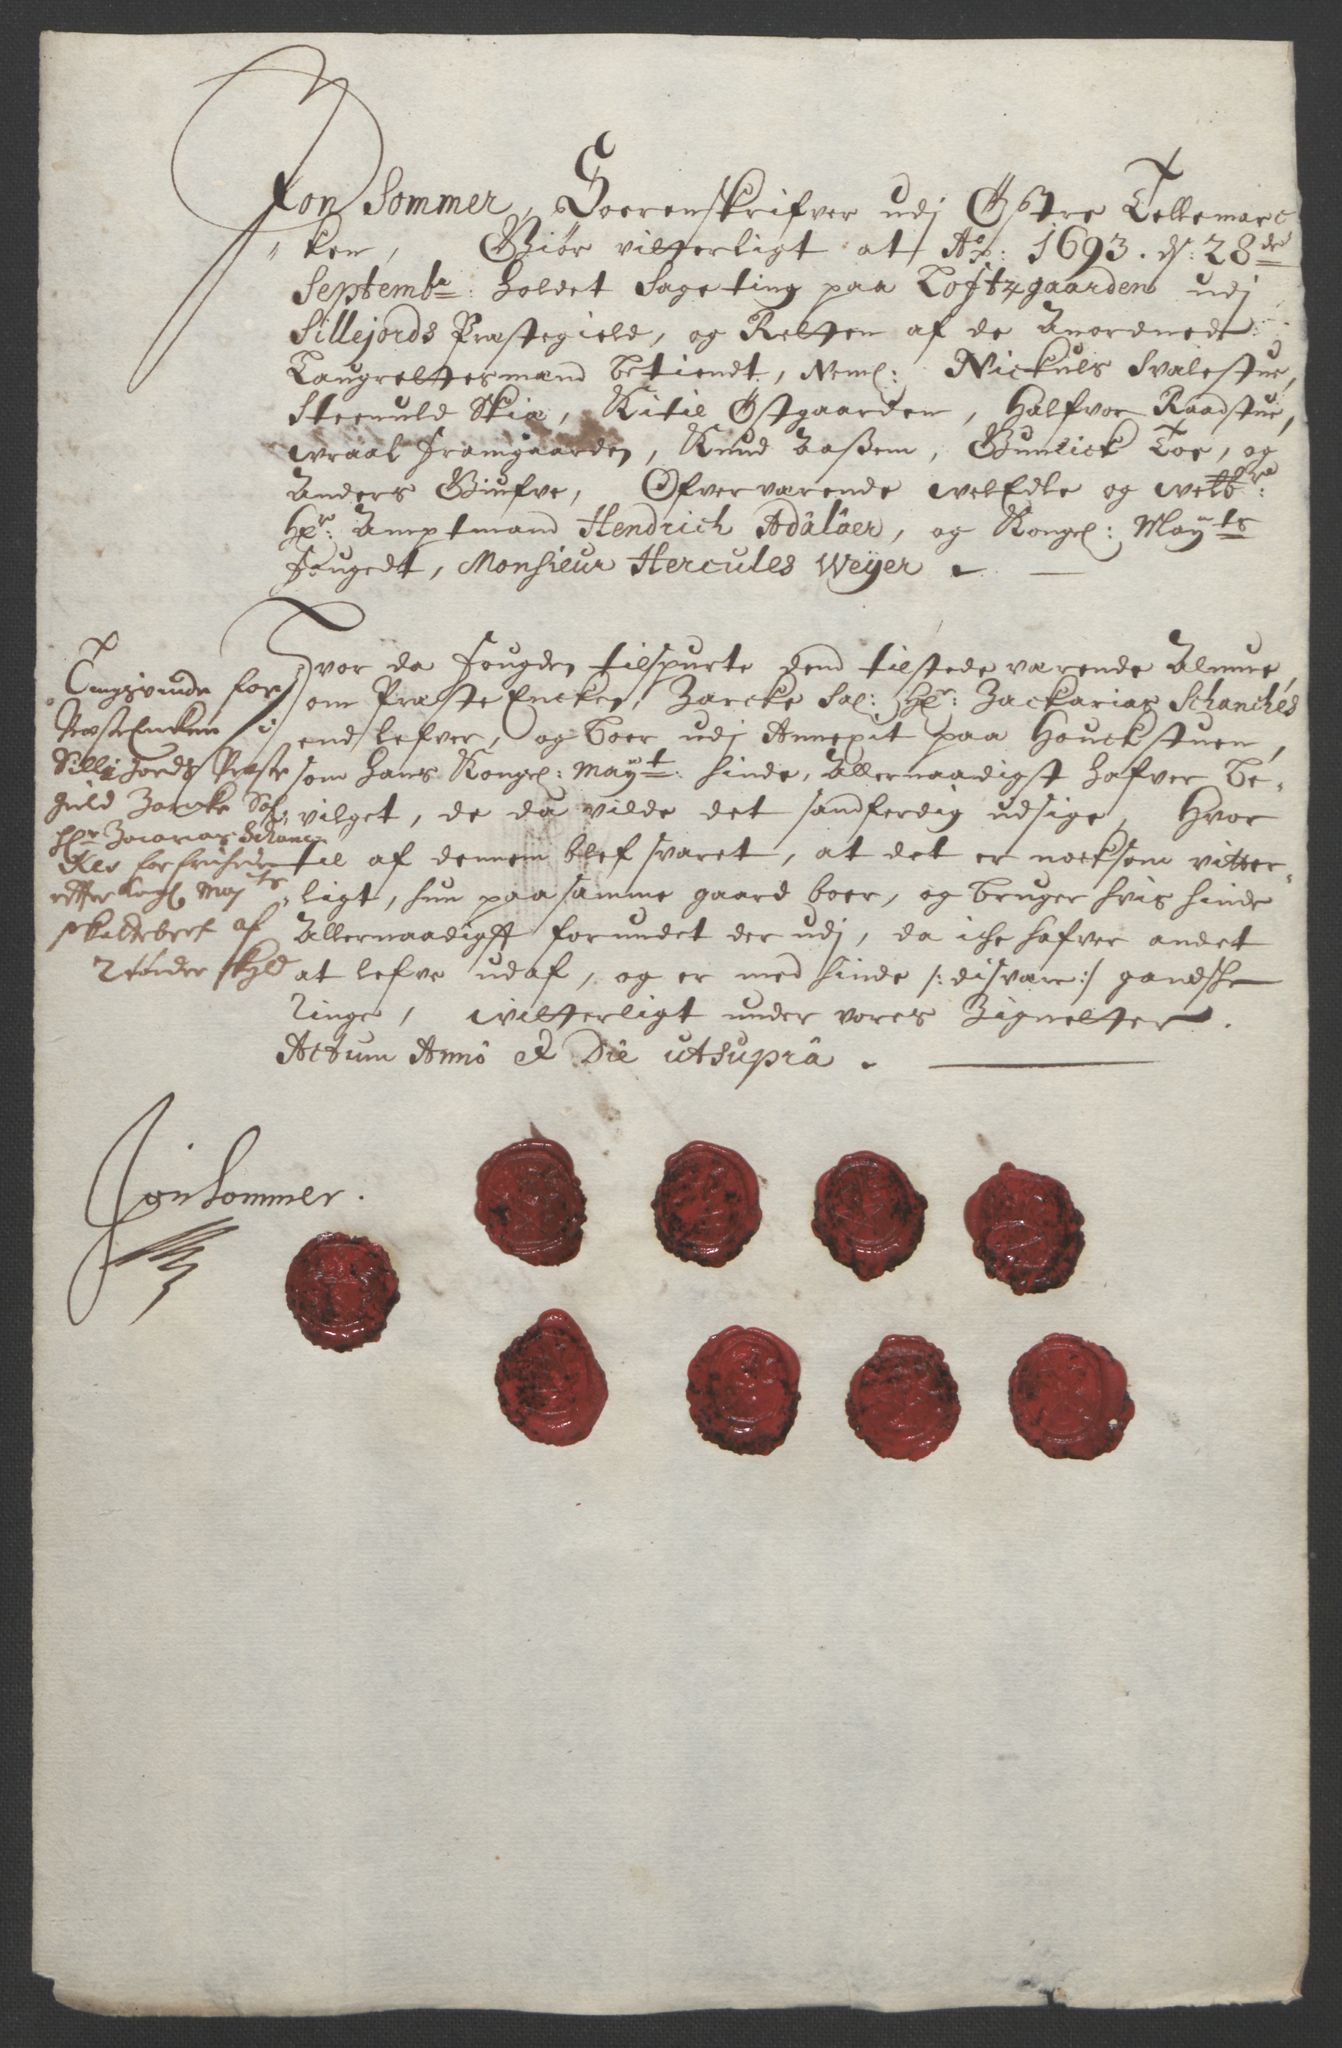 Jon Sommer, Soerenskrifver udj Østre Tellemarc
"ken, Giør vitterligt at Aō: 1693. d: 28de
Septembr: holdet Sageting paa Loftzgaarden udj
Sillejords Præstegield, og Retten af de Anordnede
Laugrettesmænd betiendt, Neml: Nickuls Svalestue,
Steenuld Skia, Kitil Østgaarden, Halfvor Raadstue,
Wraal Framgaarden, Knud Aaßem, Gunlick Loe, og
Anders Giufve, Ofververende WelEdle og
Hr: Amptmand Hendrich Adäläer, og Kongel: Mayts
Fougedt, Monsieur Hercules Weyer.
Hvor da Fougden tilspurte dend tilstedeværende Almue,
om PræsteEncken, Zarcke Sal: Hr: Zackarias Schanches
end lefver, og boer udj Annexit paa Houckstuen,
som Hans Kongel: Mayt: hinde, Allernaadigst hafver be-
vilget, de da vilde det sandferdig udsige, Hvor
til af dennem blef svaret, at det er nocksom vitter-
ligt, hun paa samme gaard boer, og bruger hvis hinde
Allernaadigst forundet der udj, da iche hafver andet
at lefve udaf, og er med hinde /: disvære :/ gandske
ringe, witterligt under vores Zignetter.
Actum Anno & Die utsuprâ.
Tingsvinde for
PræstEncken i
Sillejords Præste
gield Zarcke Sal
Hr Zacarias Schanc
Kes forfrihede
effter Kongl May ts
skattebref af
2 tønder skyld
Jon Sommer.